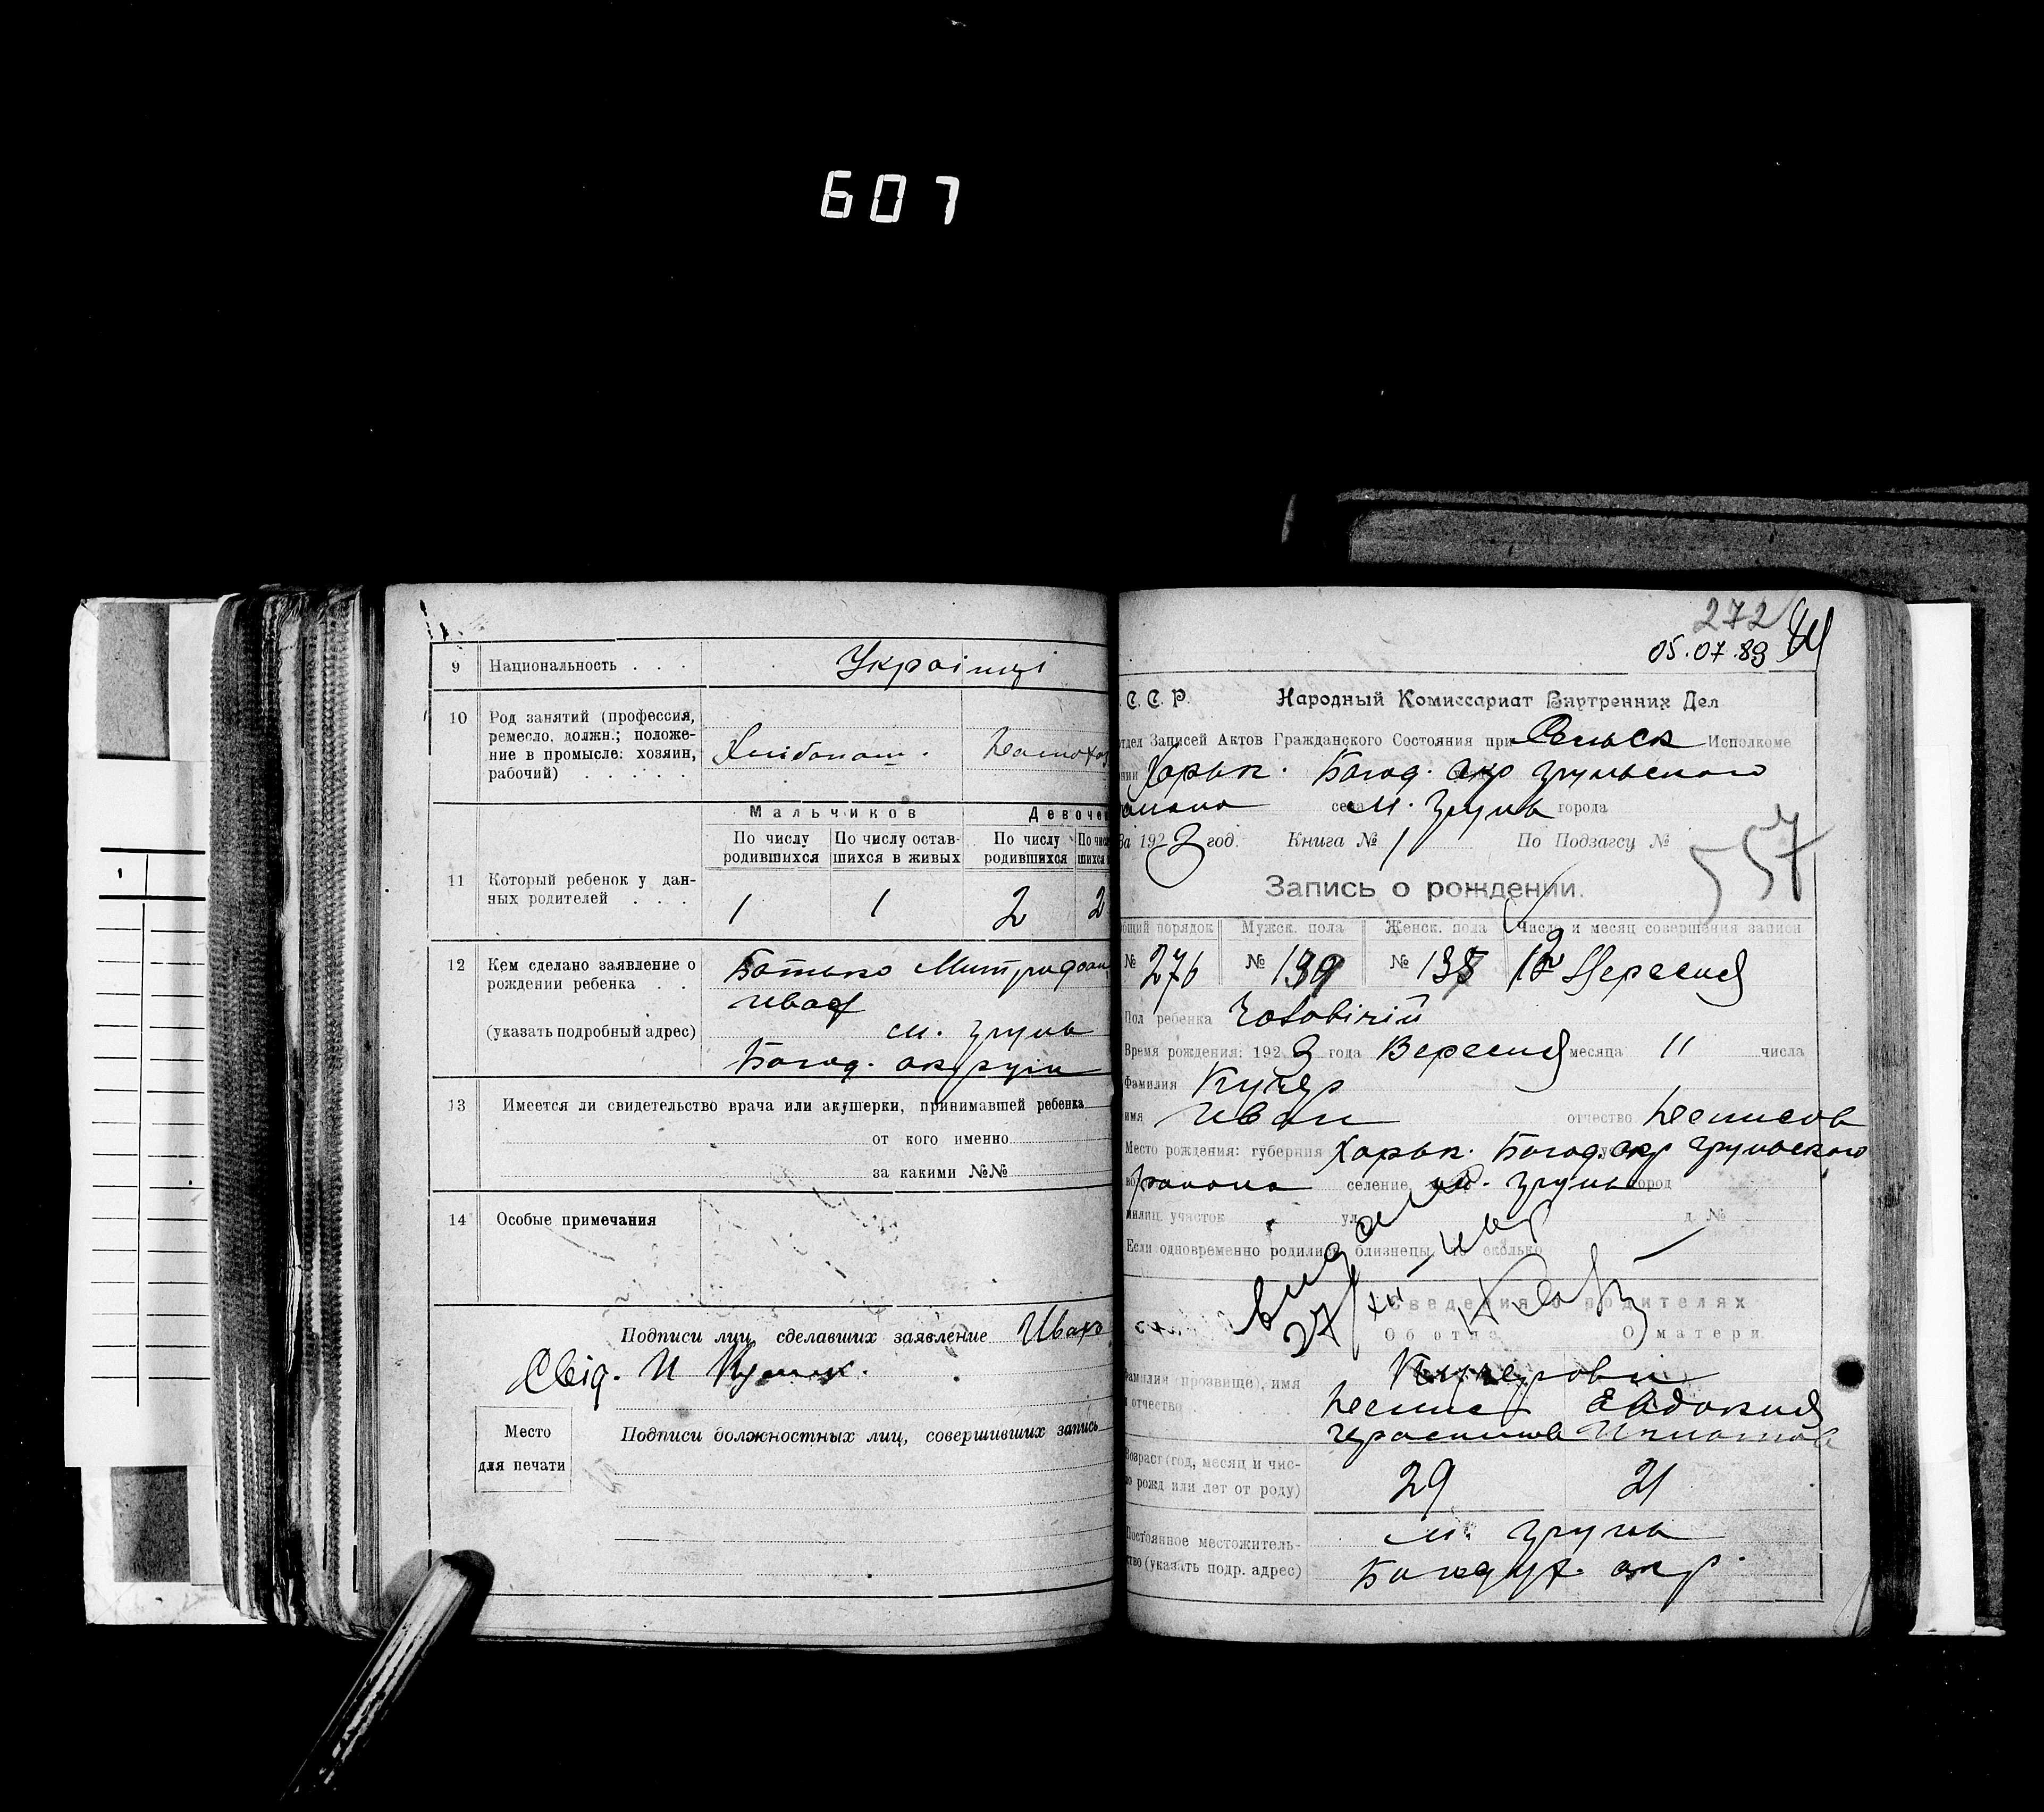 607
9 Национальность . . . Українці
10 Род занятий (профессия,
ремесло, должн.; положе-
ние в промысле: хозяин,
рабочий) . . . . .
Хлібопаш.
Мальчиков Девоче
По числу По числу остав- По числу По чис
родившихся шихся в живых родившихся шихся
11 Который ребенок у дан-
ных родителей . . .
1 1 2 2
12 Кем сделано заявление о
рождении ребенка . .
(указать подробный адрес)
Батько
Ивах
м. Грунь
Богод. округи
13 Имеется ли свидетельство врача или акушерки, принимавшей ребенка
от кого именно
за какими №№
14 Особые примечания
Подписи лиц, сделавших заявление Ивахо
Свід. И
Место
для печати
Подписи должностных лиц, совершивших запись
272
05.07.89
С. С. Р. Народный Комиссариат Внутренних Дел
отдел Записей Актов Гражданского Состояния при Сельск Исполкоме
Харьк. Богод. окр Груньского
села м. Грунь города
За 1923 год. Книга № 1 По Подзагсу №
557
Запись о рождении.
общий порядок Мужск. пола Женск. пола Число и месяц совершения записи
№ 276 № 139 № 12 Вересня
Пол ребенка Чоловічій
Время рождения: 1923 года Вересня месяца 11 числа
Фамилия Кучер
имя Иван отчество Денисов
Место рождения: губерния Харьк. Богод. окр Груньского
района селение м. Грунь город
милиц. участок ул. д. №
Если одновременно родились близнецы, то сколько
27/XII
Сведения о родителях
Об отце О матери
Фамилия (прозвище), имя
и отчество
Кучерови
Денис Евдокия
Герасимов Игнатов
Возраст (год, месяц и чис-
ло рожд или лет от роду)
29 21
Постоянное местожитель-
ство (указать подр. адрес)
м. Грунь
Богодух. окр.